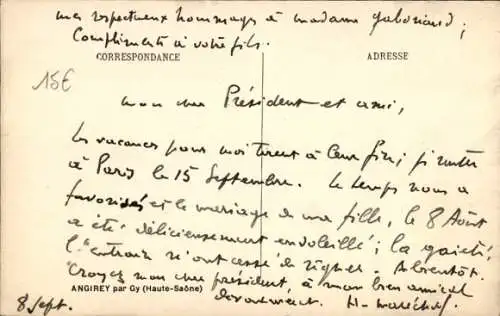 mes respectueux hommages à madame Gaboriaud ;
Compliments à votre fils.
CORRESPONDANCE
ADRESSE
15€
mon cher Président et ami,
les vacances pour moi tirent à leur fin ; je rentre
à Paris le 15 Septembre. Le temps nous a
favorisés et le mariage de ma fille, le 8 Août
a été délicieusement ensoleillé ; la gaieté,
l'entrain n'ont cessé de régner. A bientôt.
Croyez mon cher président, à mon bien amical
ANGIREY par Gy (Haute-Saône)
dévouement. H. Maréchal
8 Sept.